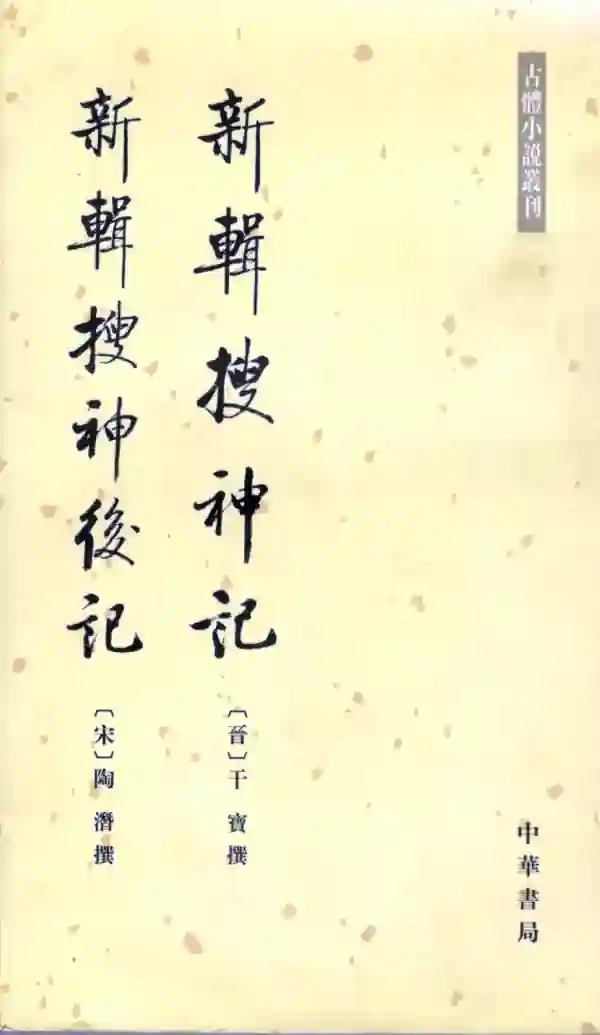 古體小説叢刊
新輯搜神記
〔晉〕干寶撰
新輯搜神後記
〔宋〕陶潛撰
中華書局